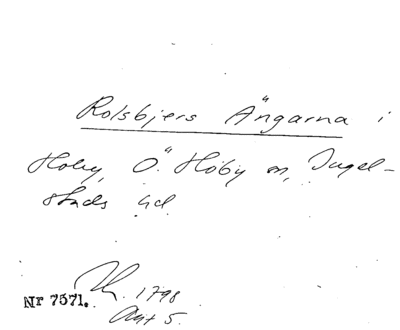 Rolsbjers Ängarna i
Hoby, Ö. Hoby sn, Ingel-
stads hd
Nr 7571. 1798
Akt 5.